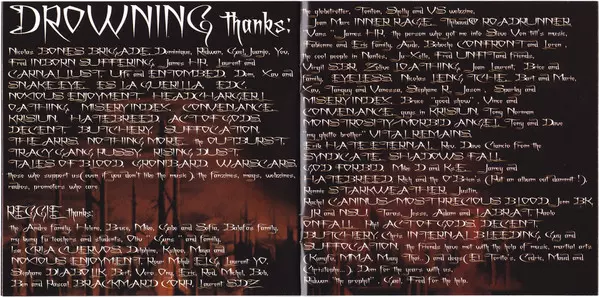 DROWNING thanks:
Nicolas BONES BRIGADE, Dominique, Ridwan, Gael, Juanjo, You,
Fred INBORN SUFFERING, James HR, Laurent and
CARNAL LUST, Ulf and ENTOMBED, Dom, Xav and
SNAKE EYE, ES LA GUERILLA, EDC,
NOXIOUS ENJOYMENT, HEADCHARGER,
OATHING, MISERY INDEX, CONVENANCE,
KRISIUN, HATEBREED, ACT OF GODS,
DECENT, BUTCHERY, SUFFOCATION,
THE ARRS, NOTHING MORE, the OUTBURST,
TRACY GANG PUSSY, RISING DUST,
TALES OF BLOOD, GRONIBARD, WARSCARS,
those who support us (even if you don't like the music) the fanzines, mags, webzines,
radios, promoters who care
REGGIE thanks:
the Andre family, Helene, Bruce, Mike, Gabe and Sofia, Balafas family,
my bang fu teachers and students, Otis "Guns" and family,
Los CRA CUERVOS, Ditshim, Kahina, Maya and
NOXIOUS ENJOYMENT, Rose, Majid E.I.G, Laurent Yo,
Stephane DIABOLIK, Bat, Vero, Ony, Eric, Rod, Michel, Bob,
Ben and Pascal BRACKMARD CORP, Laurent SDZ
the globetrotter, Tonton, Shelly and US webzine,
Jean Marc INNER RAGE, Thibaud@ ROADRUNNER,
Vans "James HR the person who got me into Steve Von till's music,
Fabienne and Eric family, Aude, Babache CONFRONT and Loren,
the cool people in Nantes, Ju-Kar, Fred UNFIT and friends,
Vinyl SBK, Zilou, OATHING, Jean Laurent, Brice and
family, EYELESS, Nicolas LENG TCHE, Bart and Marie,
Kav, Tanguy and Vanessa, Stephane R, Jason, Sparky and
MISERY INDEX, Bruce "good show", Vince and
CONVENANCE, guys in KRISIUN, Tony Norman
MONSTROSITY-MORBID ANGEL, Tony and Dave
"my ghetto brother" VITAL REMAINS,
Erik HATE ETERNAL, Rev. Dave Ciancio from the
SYNDICATE, SHADOWS FALL,
GOD FORBID, Mike D and K.E., Jamey and
HATEBREED, Rich and the O'Brien's (Put an album out damnit!),
Ronnie STARKWEATHER, Justin,
Rachel CANINUS-MOST PRECIOUS BLOOD, Jean BK,
JR and NSU, Taras, Jesse, Adam and LABRAT, Paolo
ONFALL, Phil ACT OF GODS, DECENT,
BUTCHERY, Chris INTERNAL BLEEDING, Guy and
SUFFOCATION, the friends have met with the help of music, martial arts
(Kungfu, MMA, Muay Thai...) and days (El Tortu's, Cedric, Maud and
Christophe...), Dom for the years with us,
Ridwan "the prophet", Gael, Fred for the help.